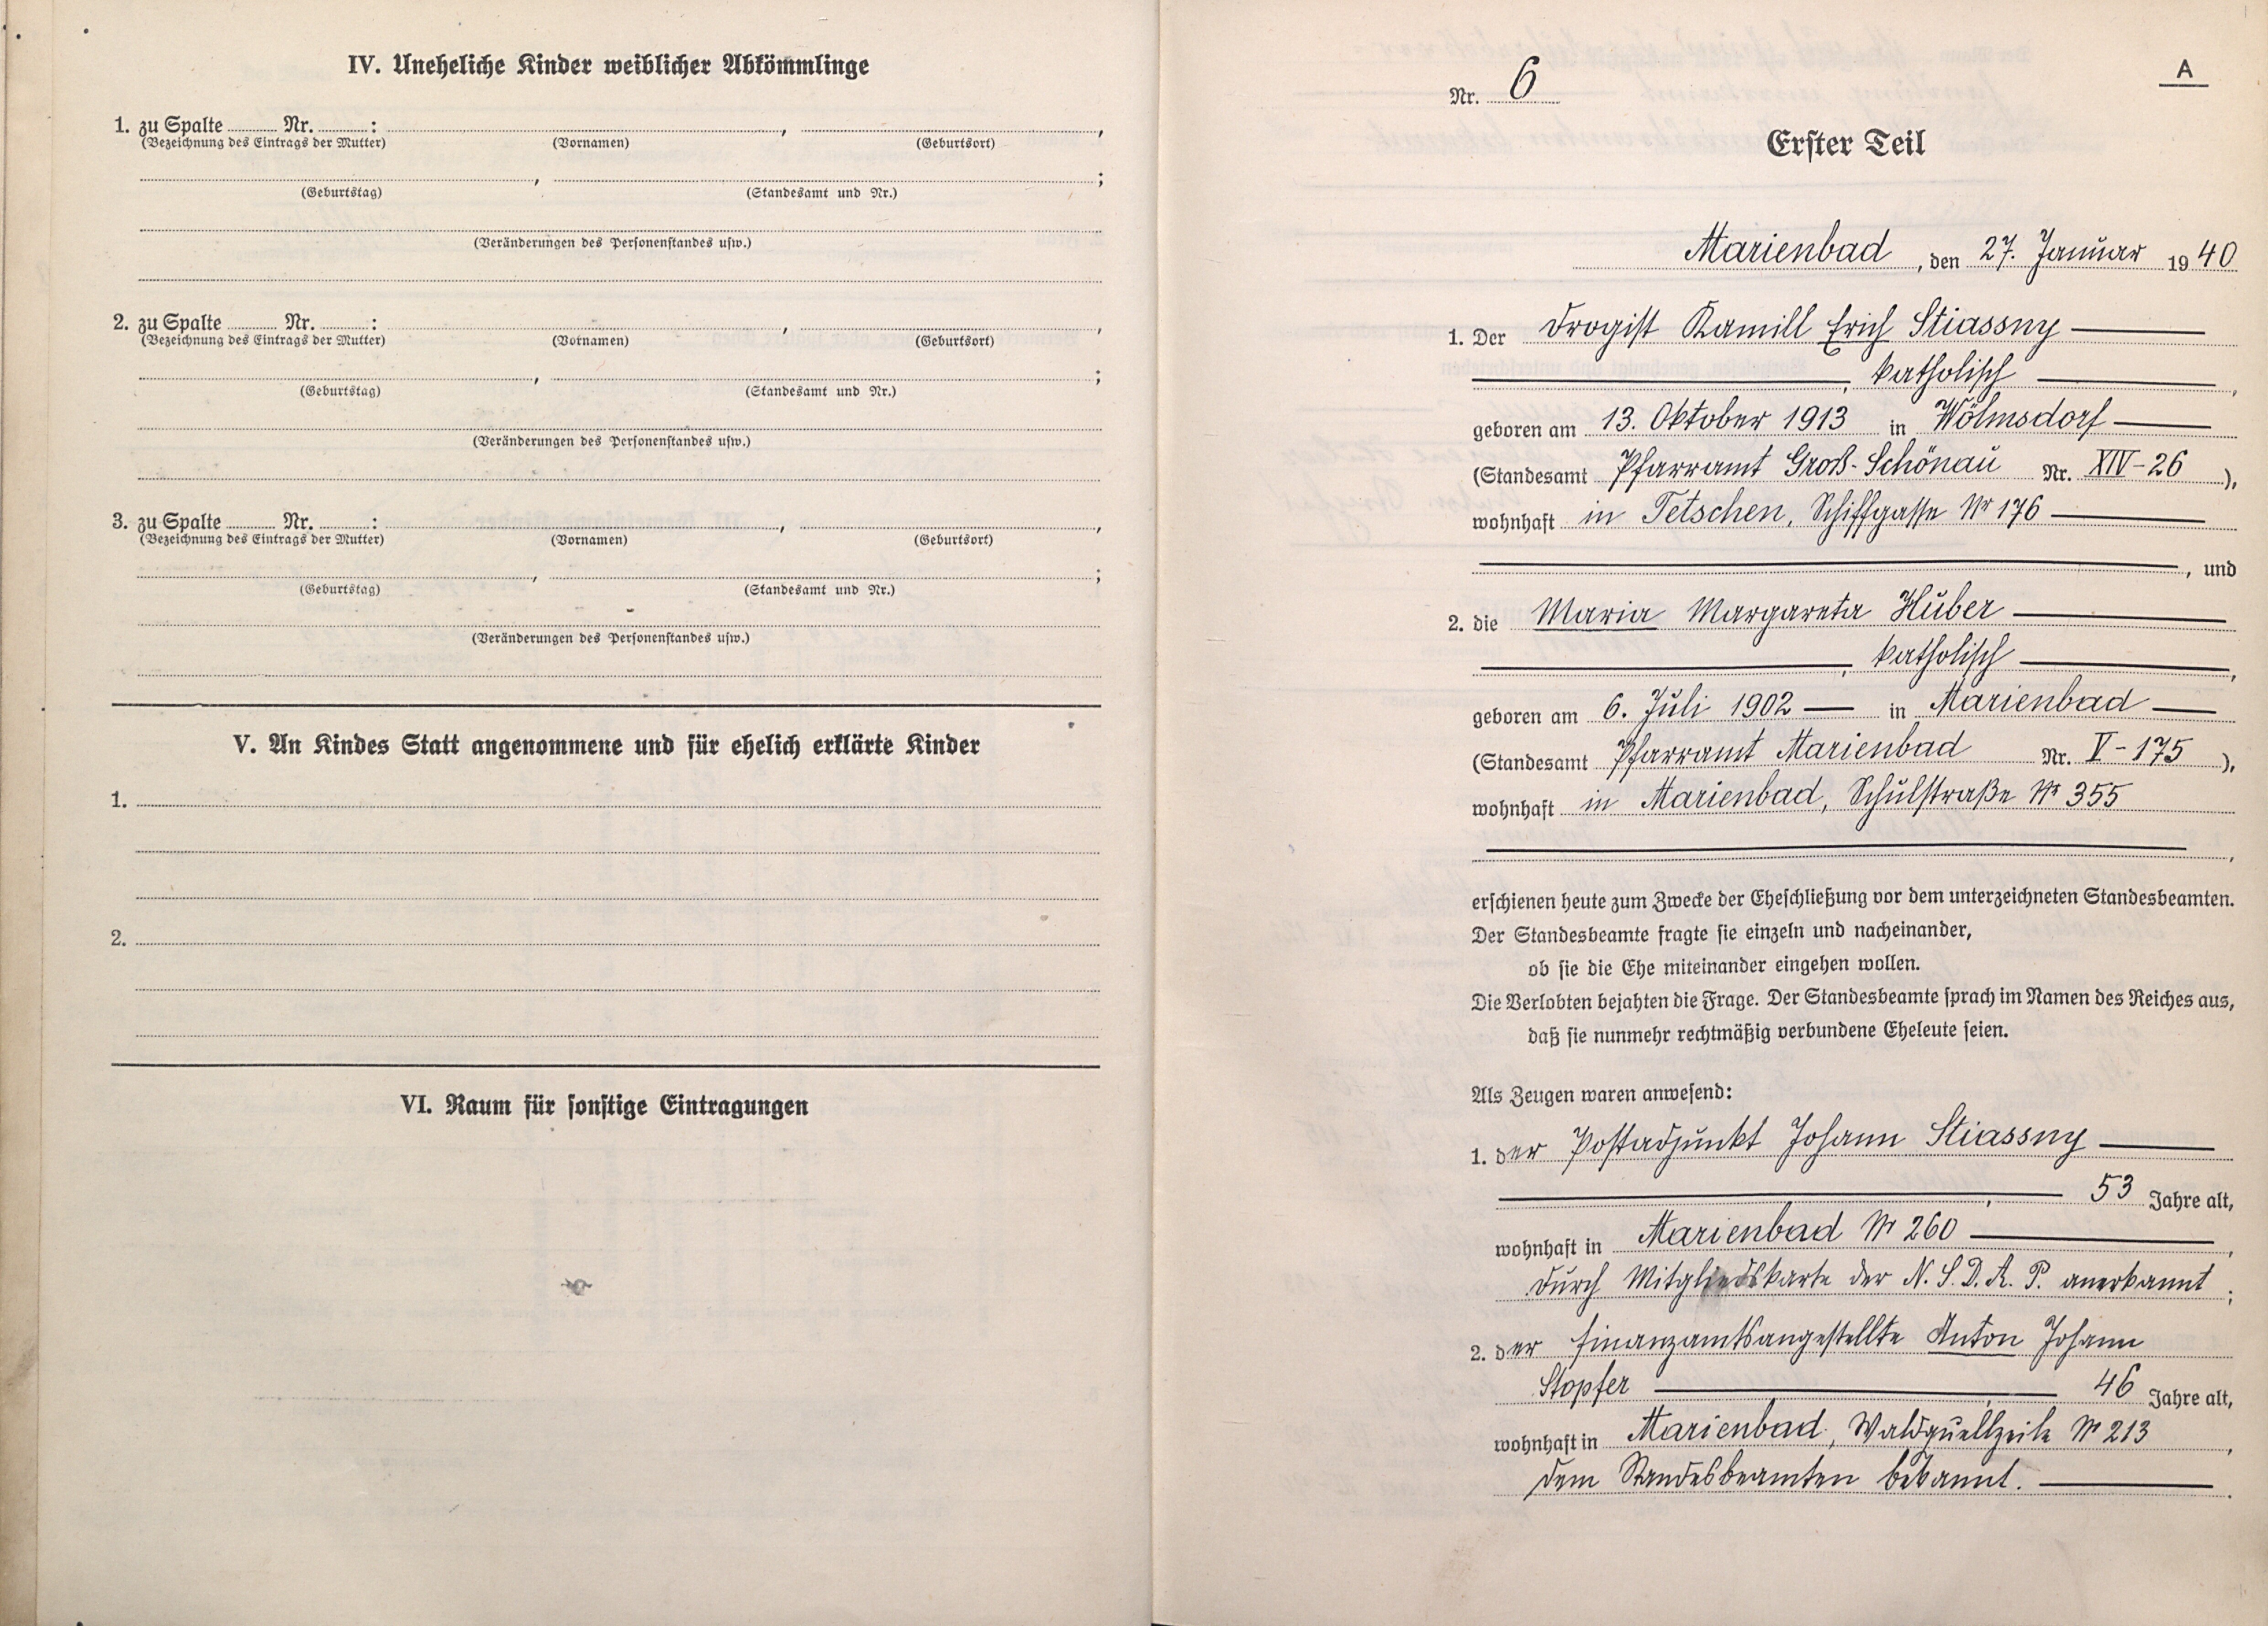 IV. Uneheliche Kinder weiblicher Abkömmlinge
1. zu Spalte ........ Nr. ........ : ........ , ........ ,
(Bezeichnung des Eintrags der Mutter) (Vornamen) (Geburtsort)
........ , ........ ;
(Geburtstag) (Standesamt und Nr.)
(Veränderungen des Personenstandes usw.)
2. zu Spalte ........ Nr. ........ : ........ , ........ ,
(Bezeichnung des Eintrags der Mutter) (Vornamen) (Geburtsort)
........ , ........ ;
(Geburtstag) (Standesamt und Nr.)
(Veränderungen des Personenstandes usw.)
3. zu Spalte ........ Nr. ........ : ........ , ........ ,
(Bezeichnung des Eintrags der Mutter) (Vornamen) (Geburtsort)
........ , ........ ;
(Geburtstag) (Standesamt und Nr.)
(Veränderungen des Personenstandes usw.)
V. An Kindes Statt angenommene und für ehelich erklärte Kinder
1.
2.
VI. Raum für sonstige Eintragungen
A
Nr. 6
Erster Teil
Marienbad, den 27. Januar 1940
1. Der Drogist Kamill Erich Stiassny
, katholisch ,
geboren am 13. Oktober 1913 in Wölmsdorf
(Standesamt Pfarramt Groß-Schönau Nr. XIV-26 ),
wohnhaft in Tetschen, Schiffgasse Nr 176
, und
2. die Maria Margareta Huber
, katholisch ,
geboren am 6. Juli 1902 in Marienbad
(Standesamt Pfarramt Marienbad Nr. V-175 ),
wohnhaft in Marienbad, Schulstraße Nr 355
,
erschienen heute zum Zwecke der Eheschließung vor dem unterzeichneten Standesbeamten.
Der Standesbeamte fragte sie einzeln und nacheinander,
ob sie die Ehe miteinander eingehen wollen.
Die Verlobten bejahten die Frage. Der Standesbeamte sprach im Namen des Reiches aus,
daß sie nunmehr rechtmäßig verbundene Eheleute seien.
Als Zeugen waren anwesend:
1. der Postadjunkt Johann Stiassny
, 53 Jahre alt,
wohnhaft in Marienbad Nr 260 ,
durch Mitgliedskarte der N.S.D.A.P. anerkannt ;
2. der Finanzamtsangestellte Anton Johann
Stopfer , 46 Jahre alt,
wohnhaft in Marienbad, Waldquellzeile Nr 213 ,
dem Standesbeamten bekannt.